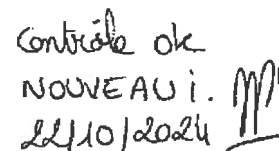 Contrôle ok
NOUVEAU i.
22/10/2024